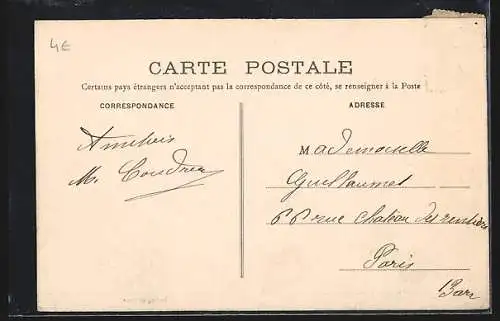 4E
CARTE POSTALE
Certains pays étrangers n'acceptant pas la correspondance de ce côté, se renseigner à la Poste
CORRESPONDANCE
ADRESSE
Amitiés
M. Coudrey
Mademoiselle
Guillaumet
rue Chateau des rentiers
Paris
13 arr